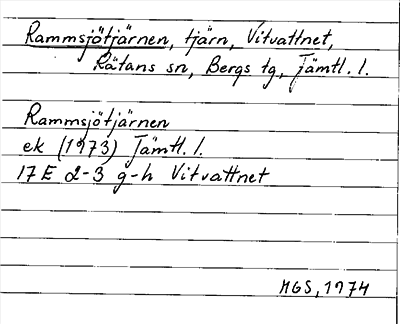 Rammsjötjärnen, tjärn, Vitvattnet,
Rätans sn, Bergs tg, Jämtl. l.
Rammsjötjärnen
ek (1973) Jämtl. l.
17 E 2-3 g-h Vitvattnet
MGS, 1974